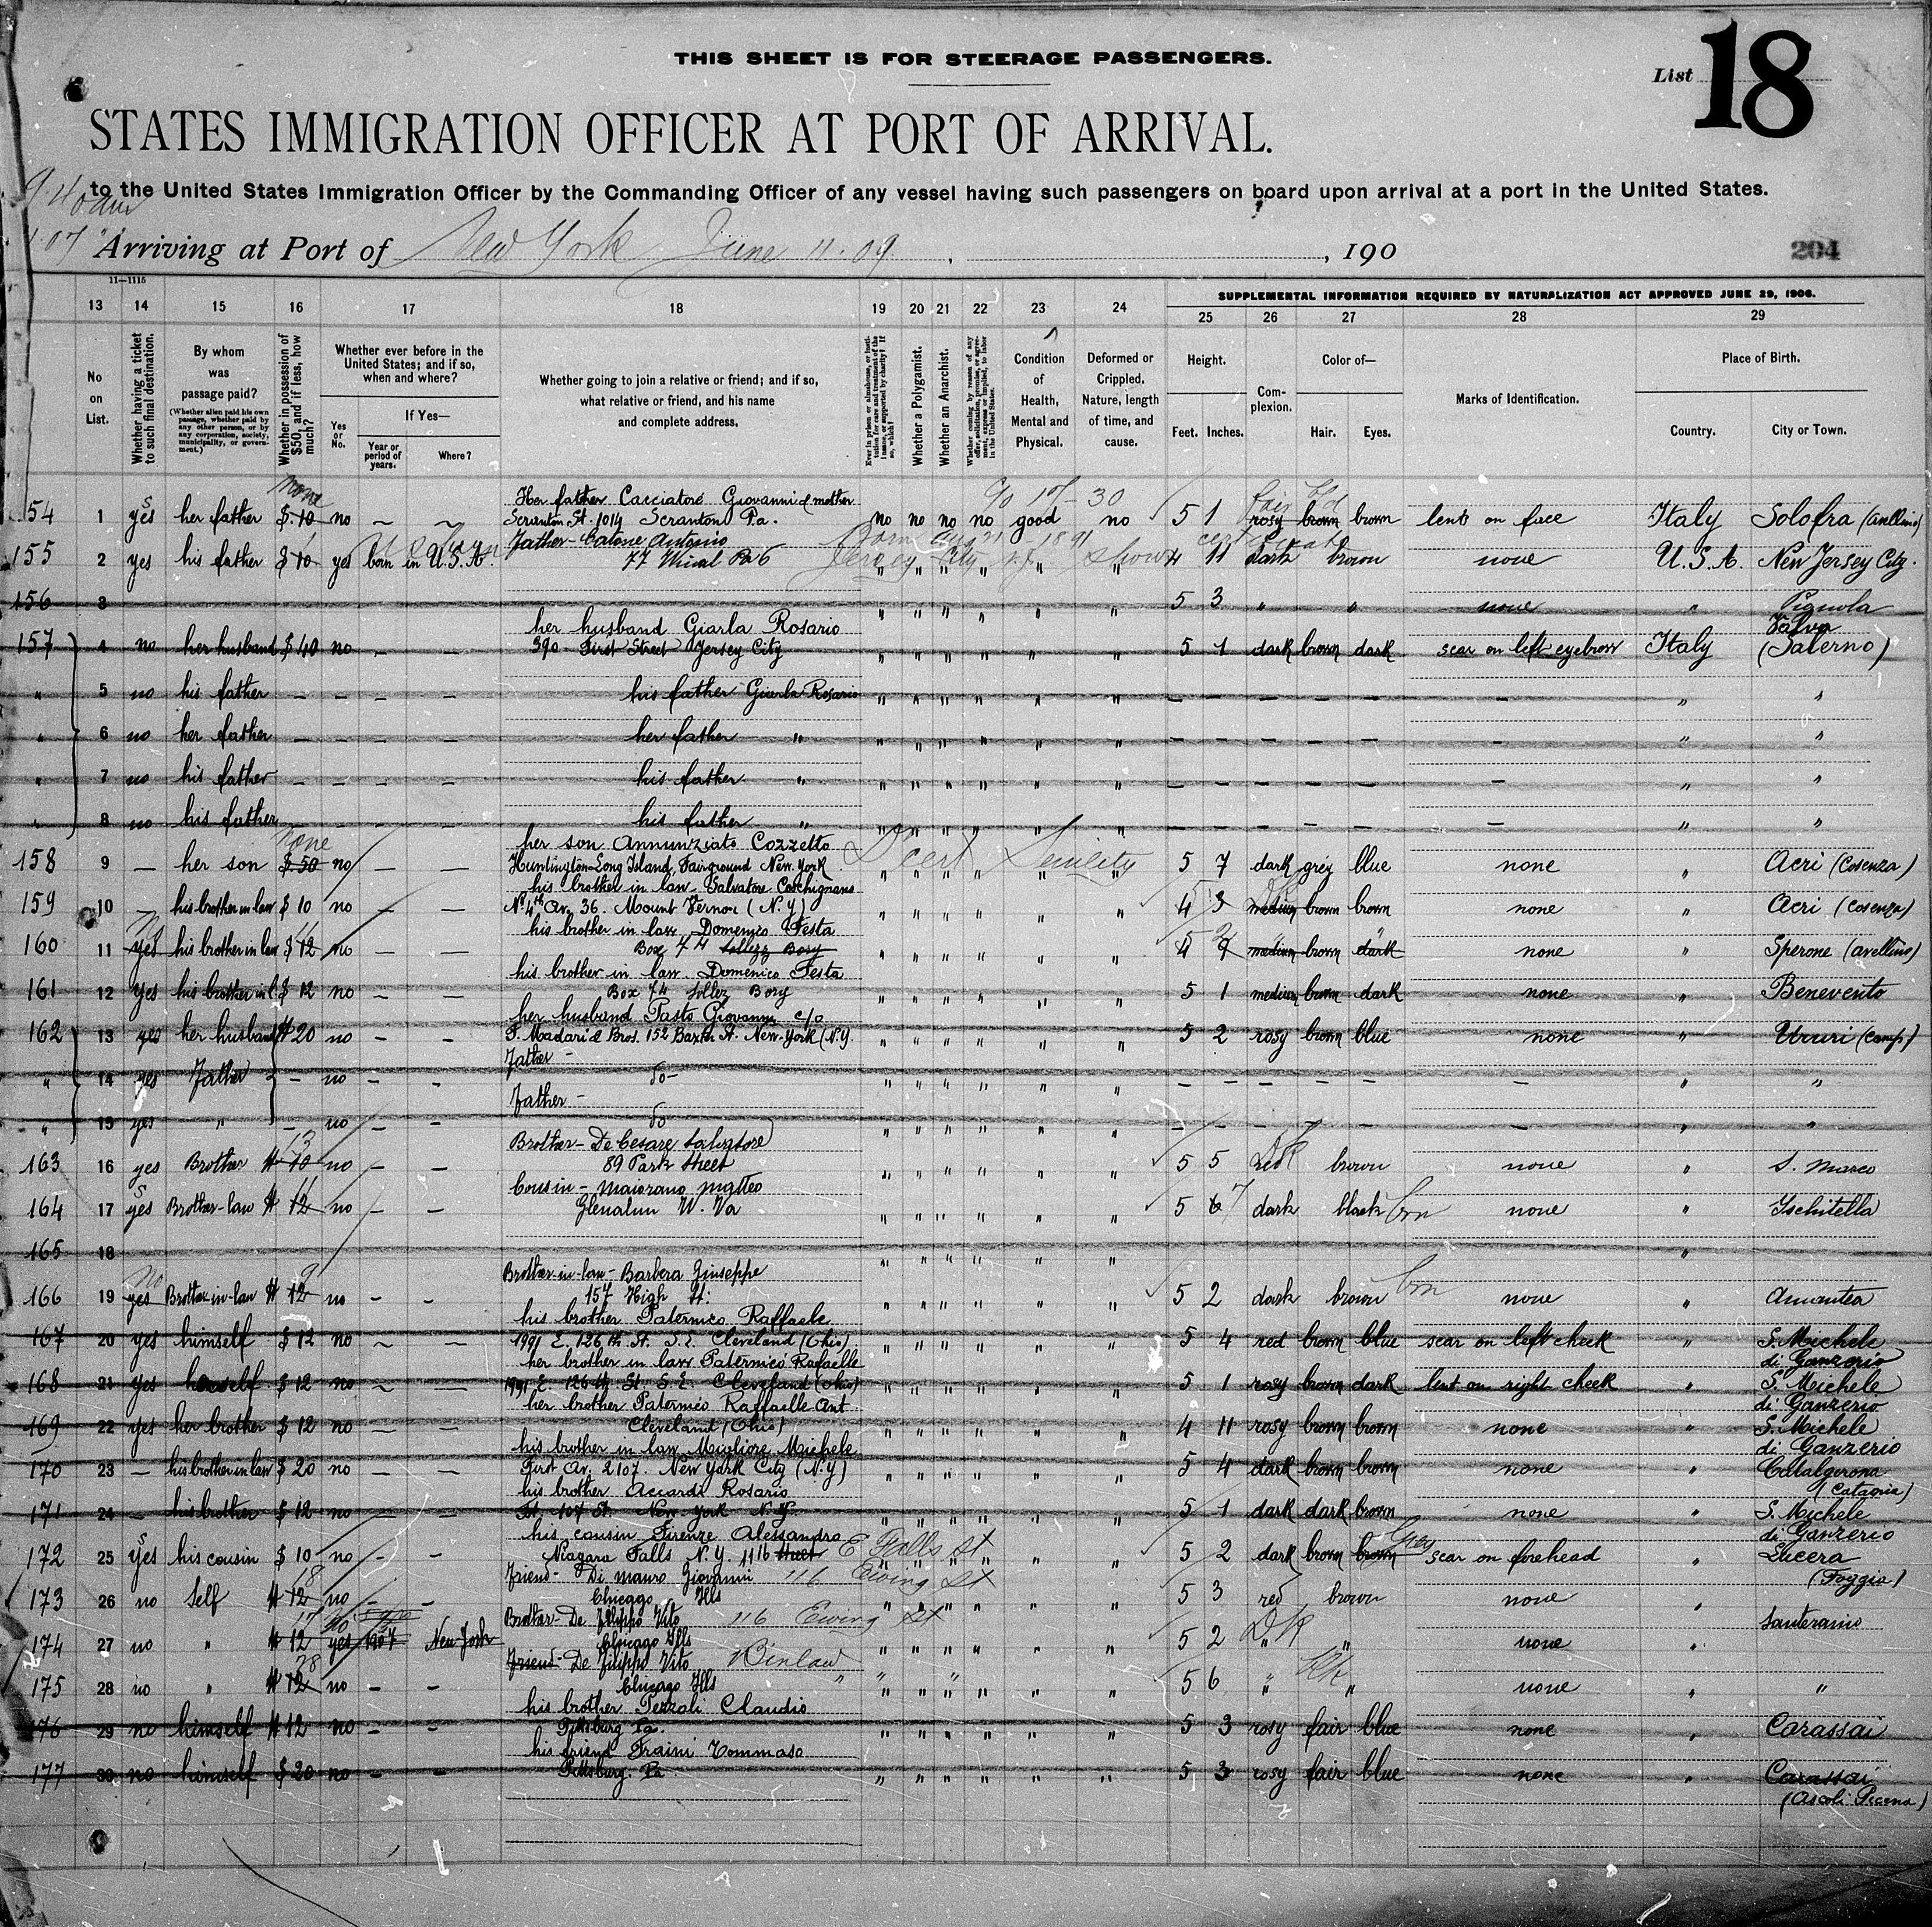 THIS SHEET IS FOR STEERAGE PASSENGERS.
List 18
STATES IMMIGRATION OFFICER AT PORT OF ARRIVAL.
9.40 am
to the United States Immigration Officer by the Commanding Officer of any vessel having such passengers on board upon arrival at a port in the United States.
Arriving at Port of New York June 11.09. , , 190
204
11—1115
SUPPLEMENTAL INFORMATION REQUIRED BY NATURALIZATION ACT APPROVED JUNE 29, 1906.
13 14 15 16 17 18 19 20 21 22 23 24 25 26 27 28 29
No on List.
Whether having a ticket to such final destination.
By whom was passage paid?
(Whether alien paid his own passage, whether paid by any other person, or by any corporation, society, municipality, or government.)
Whether in possession of $50, and if less, how much?
Whether ever before in the United States; and if so, when and where?
Yes or No.
If Yes—
Year or period of years.
Where?
Whether going to join a relative or friend; and if so, what relative or friend, and his name and complete address.
Ever in prison or almshouse, or institution for care and treatment of the insane, or supported by charity? If so, which?
Whether a Polygamist.
Whether an Anarchist.
Whether coming by reason of any offer, solicitation, promise, or agreement, express or implied, to labor in the United States.
Condition of Health, Mental and Physical.
Deformed or Crippled. Nature, length of time, and cause.
Height.
Feet. Inches.
Complexion.
Color of—
Hair. Eyes.
Marks of Identification.
Place of Birth.
Country. City or Town.
none Her father Cacciatore Giovanni & mother fair
154 1 yes her father $ 10 no Scranton St. 1014 Scranton Pa. no no no no good no 5 1 rosy brown brown lents on face Italy Solofra (Avellino)
Father - Catone Antonio Born Aug 21 - 1891 certificate
155 2 yes his father $ 10 yes born in U.S.A. 77 Jersey City N.J. Show 4 11 dark brown none U.S.A. New Jersey City.
156 3 " " " " " " 5 3 " " none " Pignola
her husband Giarla Rosario Valva
157 4 no her husband $ 40 no — — 390 First Street Jersey City " " " " " " 5 1 dark brown dark scar on left eyebrow Italy (Salerno)
" 5 no his father — — — — his father Giarla Rosario " " " " " " — — — — — — " "
" 6 no her father — — — — her father " " " " " " " — — — — — — " "
" 7 no his father — — — — his father " " " " " " " — — — — — — " "
" 8 no his father — — — — his father " " " " " " " — — — — — — " "
none her son Annunziato Cozzetto Dr cert Senility
158 9 — her son $ 50 no — — Huntington Long Island, Fairground New York " " " " " " 5 7 dark grey blue none " Acri (Cosenza)
his brother in law Salvatore
159 10 — his brother in law $ 10 no — — No 4th Av. 36. Mount Vernon (N.Y) " " " " " " 4 3 medium brown brown none " Acri (Cosenza)
No his brother in law Domenico Festa
160 11 yes his brother in law $ 12 no — — Box 74 " " " " " " medium brown dark none " Sperone (Avellino)
his brother in law Domenico Festa
161 12 yes his brother in l. $ 12 no — — Box 74 " " " " " " 5 1 medium brown dark none " Benevento
her husband Pasto Giovanni c/o
162 13 yes her husband $ 20 no — — Bros. 152 Baxter St. New-York (N.Y. " " " " " " 5 2 rosy brown blue none " Ururi (Camp)
Father -
" 14 yes Father — no — — do- " " " " " " — — — — — — " "
Father -
" 15 yes " — no — — do " " " " " " — — — — — — " "
13 Brother - De Cesare Salvatore
163 16 yes Brother $ 10 no — — 89 Park Street " " " " " " 5 5 red DK brown none " S. Marco
11 Cousin - Maiorano Matteo
164 17 yes Brother-law $ 12 no — — W. Va " " " " " " 5 6 7 dark black brn none " Ischitella
165 18 " " " " " " "
No 9 Brother-in-law - Barbera Giuseppe
166 19 yes Brother in-law $ 12 no — — 157 High St: " " " " " " 5 2 dark brown brn none " Amantea
his brother Paternico Raffaele
167 20 yes himself $ 12 no — — 1991 E. 126th St. S.E. Cleveland (Ohio) " " " " " " 5 4 red brown blue scar on left cheek " S. Michele di Ganzeria
her brother in law Paternicò Raffaelle
168 21 yes herself $ 12 no — — 1991 E. 126th St. S.E. Cleveland (Ohio) " " " " " " 5 1 rosy brown dark lent on right cheek " S. Michele di Ganzerio
her brother Paternicò Raffaelle Ant.
169 22 yes her brother $ 12 no — — Cleveland (Ohio) " " " " " " 4 11 rosy brown brown none " S. Michele di Ganzerio
his brother in law Migliore Michele
170 23 — his brother in law $ 20 no — — First Av. 2107. New York City (N.Y) " " " " " " 5 4 dark brown brown none " Catalgerona (Catania)
his brother Accardi Rosario
171 24 — his brother $ 12 no — — 107 St. New-York N.Y. " " " " " " 5 1 dark dark brown none " S. Michele di Ganzerio
his cousin Firenze Alessandro Grey
172 25 yes his cousin $ 10 no — — Niagara Falls N.Y. 1116 Street E Falls St " " " " " " 5 2 dark brown brown scar on forehead " Lucera (Foggia)
18 Friend - Di Mauro Giovanni 116 Ewing St
173 26 no Self $ 12 no — — Chicago Ills " " " " " " 5 3 red brown none "
no Brother - De Filippo Vito 116 Ewing St Santeramo
174 27 no " $ 12 yes 1907 New York Chicago Ills " " " " " " 5 2 DK " none "
28 Friend - De Filippo Vito Binlaw
175 28 no " $ 12 no — — Chicago Ills " " " " " " 5 6 " " none " "
his brother Pezzoli Claudio
176 29 no himself $ 12 no — — Pittsburg Pa. " " " " " " 5 3 rosy fair blue none " Carassai
his friend Traini Tommaso
177 30 no himself $ 20 no — — Pittsburg. Pa " " " " " " 5 3 rosy fair blue none " Carassai
(Ascoli Piceno)